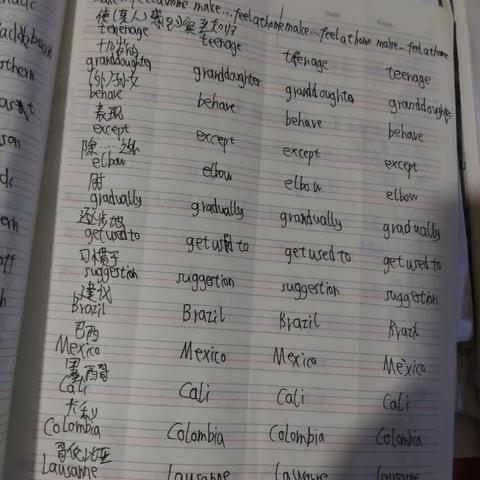 make...feel at home make...feel at home make...feel at home make...feel at home
使(某人)宾至如归
teenage teenage teenage teenage
十几岁的
granddaughter granddaughter granddaughter granddaughter
(外)孙女
behave behave behave behave
表现
except except except except
除……之外
elbow elbow elbow elbow
肘
gradually gradually gradually gradually
逐步地
get used to get used to get used to get used to
习惯于
suggestion suggestion suggestion suggestion
建议
Brazil Brazil Brazil Brazil
巴西
Mexico Mexico Mexico Mexico
墨西哥
Cali Cali Cali Cali
卡利
Colombia Colombia Colombia Colombia
哥伦比亚
Lausanne Lausanne Lausanne Lausanne